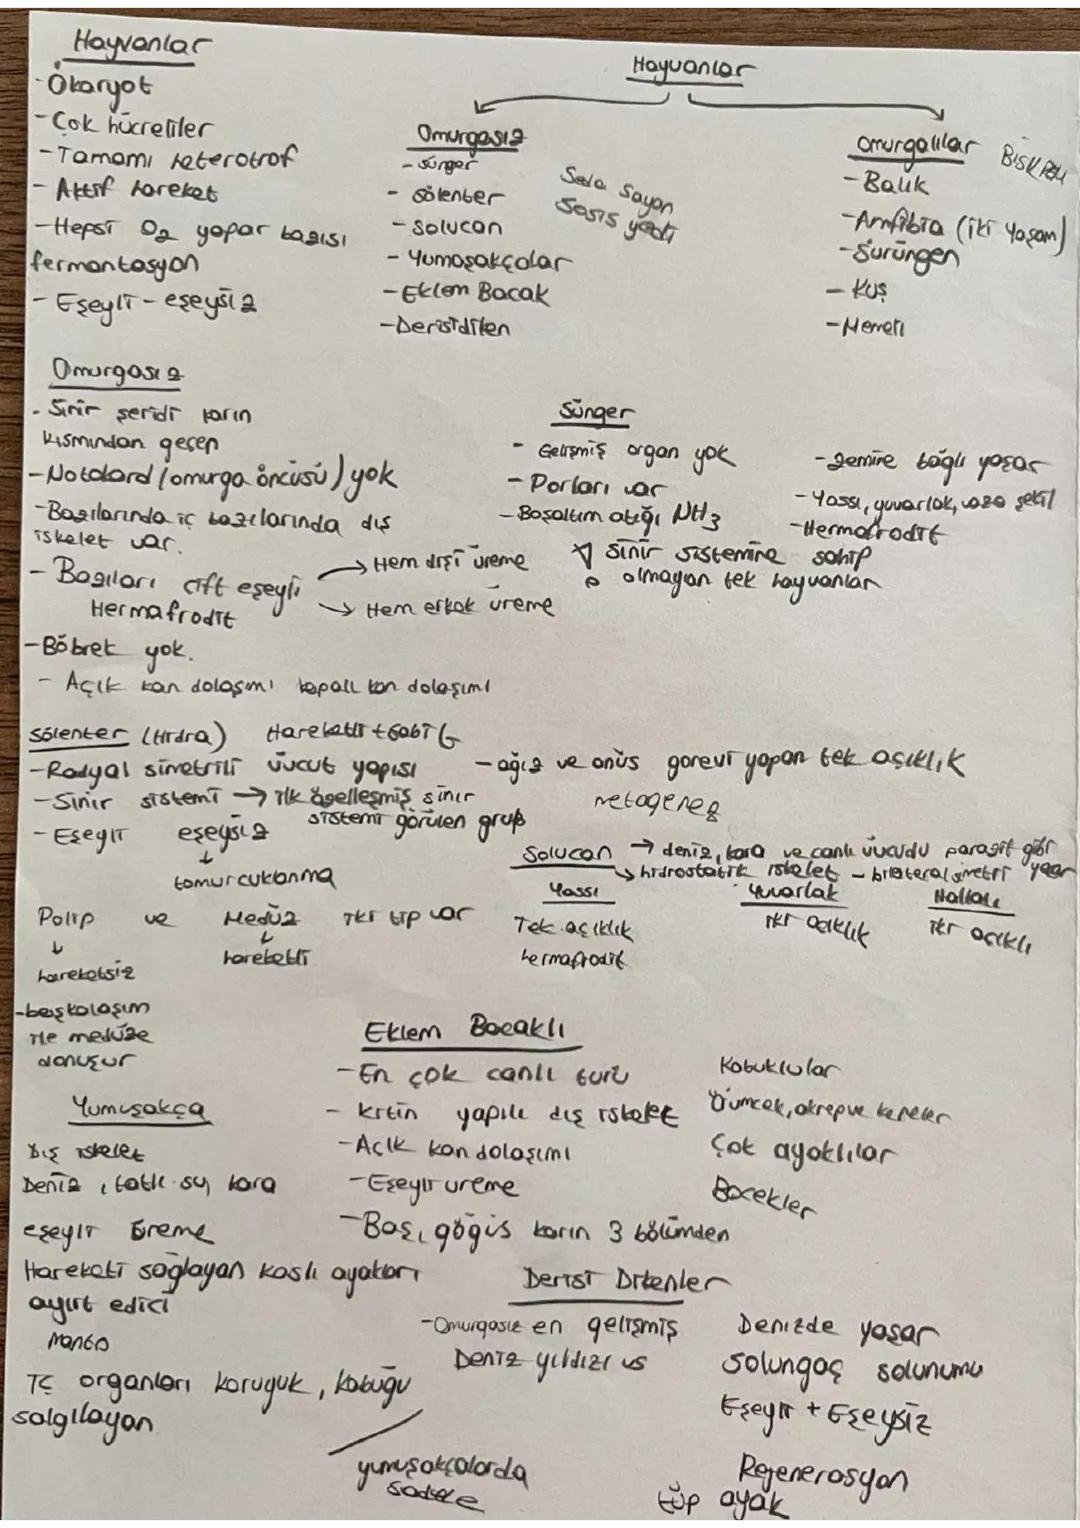 Hayvanlar
-Ökaryot
-Çok hücreliler
-Tamamı heterotrof
-Aktif hareket
-Hepsi O2 yapar bazısı
fermantasyon
-Eşeyli-eşeysiz
Hayvanlar
Omurgasız
-Sünger
-sölenter
-Solucan
-Yumuşakçalar
-Eklem Bacak
-Derisidiken
Seda Sayan
Sosis yedi
omurgalılar BISKREM
-Balık
-Amfibia (iki yaşam)
-Sürüngen
-Kuş
-Memeli
Omurgasız
-Sinir şeridi karın
kısmından geçen
-Notokord (omurga öncüsü) yok
-Bazılarında iç bazılarında dış
iskelet var.
-Bazıları çift eşeyli
Hermafrodit
→ Hem dişi üreme
→ Hem erkek üreme
-Böbrek yok.
-Açık kan dolaşımı kapalı kan dolaşımı
Sünger
-Gelişmiş organ yok
-Porları var
-Boşaltım atığı NH3
-zemine bağlı yaşar
-Yassı, yuvarlak, vazo şekil
-Hermafrodit
Sinir sistemine sahip
olmayan tek hayvanlar
Sölenter (Hidra) Hareketli + Sabit
-Radyal simetrili vücut yapısı
-ağız ve anüs görevi yapan tek açıklık
-Sinir sistemi → ilk özelleşmiş sinir
sistemi görülen grup
metagenez
-Eşeyli eşeysiz
↓
tomurcuklanma
Polip ve Medüz iki tip var
↓ ↓
hareketsiz hareketli
-başkalaşım
ile medüze
dönüşür
Solucan → deniz, kara ve canlı vücudu parazit gibi yaşar
↳ hidrostatik iskelet - bilateral simetri
Yassı
Tek açıklık
hermafrodit
Yuvarlak
iki açıklık
Halkalı
iki açıklı
Eklem Bacaklı
-En çok canlı türü
-kitin yapılı dış iskelet
-Açık kan dolaşımı
-Eşeyli üreme
-Baş, göğüs karın 3 bölümden
Kabuklular
Örümcek, akrep ve keneler
Çok ayaklılar
Böcekler
Yumuşakça
Dış iskelet
Deniz, tatlı su, kara
eşeyli üreme
Hareketi sağlayan kaslı ayakları
ayırt edici
manto
İç organları koruyuk, kabuğu
salgılayan
yumuşakçalarda
sadece
Derisi Dikenler
-Omurgasız en gelişmiş
Deniz yıldızı vs
Denizde yaşar
Solungaç solunumu
Eşeyli + Eşeysiz
Rejenerasyon
tüp ayak